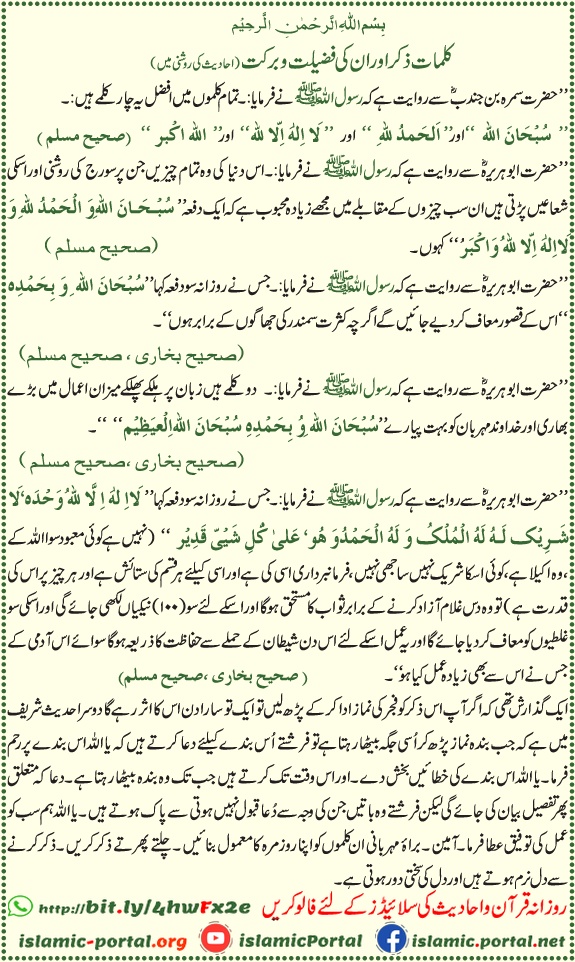 بِسْمِ اللهِ الرَّحْمٰنِ الرَّحِيْمِ
کلمات ذکر اور ان کی فضیلت و برکت (احادیث کی روشنی میں)
’’حضرت سمرہ بن جندبؓ سے روایت ہے کہ رسول اللہ ﷺ نے فرمایا:۔ تمام کلموں میں افضل یہ چار کلمے ہیں:۔
’’ سُبْحَانَ اللہ ‘‘ اور ’’ اَلْحَمدُ للهِ ‘‘ اور ’’ لَا اِلٰهَ اِلَّا للهُ‘‘ اور ’’ الله اکْبر ‘‘ (صحيح مسلم)
’’حضرت ابو ہریرہؓ سے روایت ہے کہ رسول اللہ ﷺ نے فرمایا:۔ اس دنیا کی وہ تمام چیزیں جن پر سورج کی روشنی اور اسکی
شعاعیں پڑتی ہیں ان سب چیزوں کے مقابلے میں مجھے زیادہ محبوب ہے کہ ایک دفعہ ’’سُبْحَـانَ اللهِ وَ الْحَمْدُ للهِ وَ
لَااِلٰهَ اِلَّا للهُ وَاکْبَرُ‘‘ کہوں۔ (صحيح مسلم)
’’حضرت ابو ہریرہؓ سے روایت ہے کہ رسول اللہ ﷺ نے فرمایا:۔ جس نے روزانہ سو دفعہ کہا ’’سُبْحَانَ اللهِ وَ بِحَمْدِه
‘‘اس کے قصور معاف کر دیے جائیں گے اگرچہ کثرت سمندر کی جھاگوں کے برابر ہوں‘‘۔
(صحيح بخاری ، صحيح مسلم)
’’حضرت ابو ہریرہؓ سے روایت ہے کہ رسول اللہ ﷺ نے فرمایا:۔ دو کلمے ہیں زبان پر ہلکے پھلکے میزان اعمال میں بڑے
بھاری اور خداوند مہربان کو بہت پیارے ’’سُبْحَانَ الله وَ بِحَمْدِهِ سُبْحَانَ اللهِ الْعَظِيْم‘‘ ‘‘۔
(صحيح بخاری ،صحيح مسلم)
’’حضرت ابو ہریرہؓ سے روایت ہے کہ رسول اللہ ﷺ نے فرمایا:۔ جس نے روزانہ سو دفعہ کہا ’’لَااِلٰهَ اِلَّا للهُ وَحْدَه‘ لَا
شَرِيْکَ لَـهُ لَهُ الْمُلْکُ وَ لَهُ الْحَمْدُ وَ هُو‘ عَلیٰ کُلِ شَيْیٍ قَدِيْر ‘‘ (نہیں ہے کوئی معبود سوا اللہ کے
،وہ اکیلا ہے، کوئی اسکا شریک نہیں ساجھی نہیں، فرمانبرداری اسی کی ہے اور اسی کیلئے ہر قسم کی ستائش ہے اور ہر چیز پر اس کی
قدرت ہے) تو وہ دس غلام آزاد کرنے کے برابر ثواب کا مستحق ہوگا اور اسکے لئے سو (۱۰۰) نیکیاں لکھی جائے گی اور اسکی سو
غلطیوں کو معاف کر دیا جائے گا اور یہ عمل اسکے لئے اس دن شیطان کے حملے سے حفاظت کا ذریعہ ہوگا سوائے اس آدمی کے
جس نے اس سے بھی زیادہ عمل کیا ہو‘‘۔ (صحيح بخاری ،صحيح مسلم)
ایک گذارش تھی کہ اگر آپ اس ذکر کو فجر کی نماز ادا کر کے پڑھ لیں تو ایک تو سارا دن اس کا اثر رہے گا دوسرا حدیث شریف
میں ہے کہ جب بندہ نماز پڑھ کر اُسی جگہ بیٹھا رہتا ہے تو فرشتے اُس بندے کیلئے دعا کرتے ہیں کہ یا اللہ اس بندے پر رحم
فرما۔ یا اللہ اس بندے کی خطائیں بخش دے۔ اور اس وقت تک کرتے ہیں جب تک وہ بندہ بیٹھا رہتا ہے۔ دعا کہ متعلق
پھر تفصیل بیان کی جائے گی لیکن فرشتے وہ باتیں جن کی وجہ سے دُعا قبول نہیں ہوتی سے پاک ہوتے ہیں۔ یا اللہ ہم سب کو
عمل کی توفیق عطا فرما۔ آمین۔ براہ مہربانی ان کلموں کو اپنا روزمرہ کا معمول بنائیں۔ چلتے پھرتے ذکر کریں۔ ذکر کرنے
سے دل نرم ہوتے ہیں اور دل کی سختی دور ہوتی ہے۔
روزانہ قرآن و احادیث کی سلائیڈز کے لئے فالو کریں http://bit.ly/4hwFx2e
islamic-portal.org islamicPortal islamic.portal.net